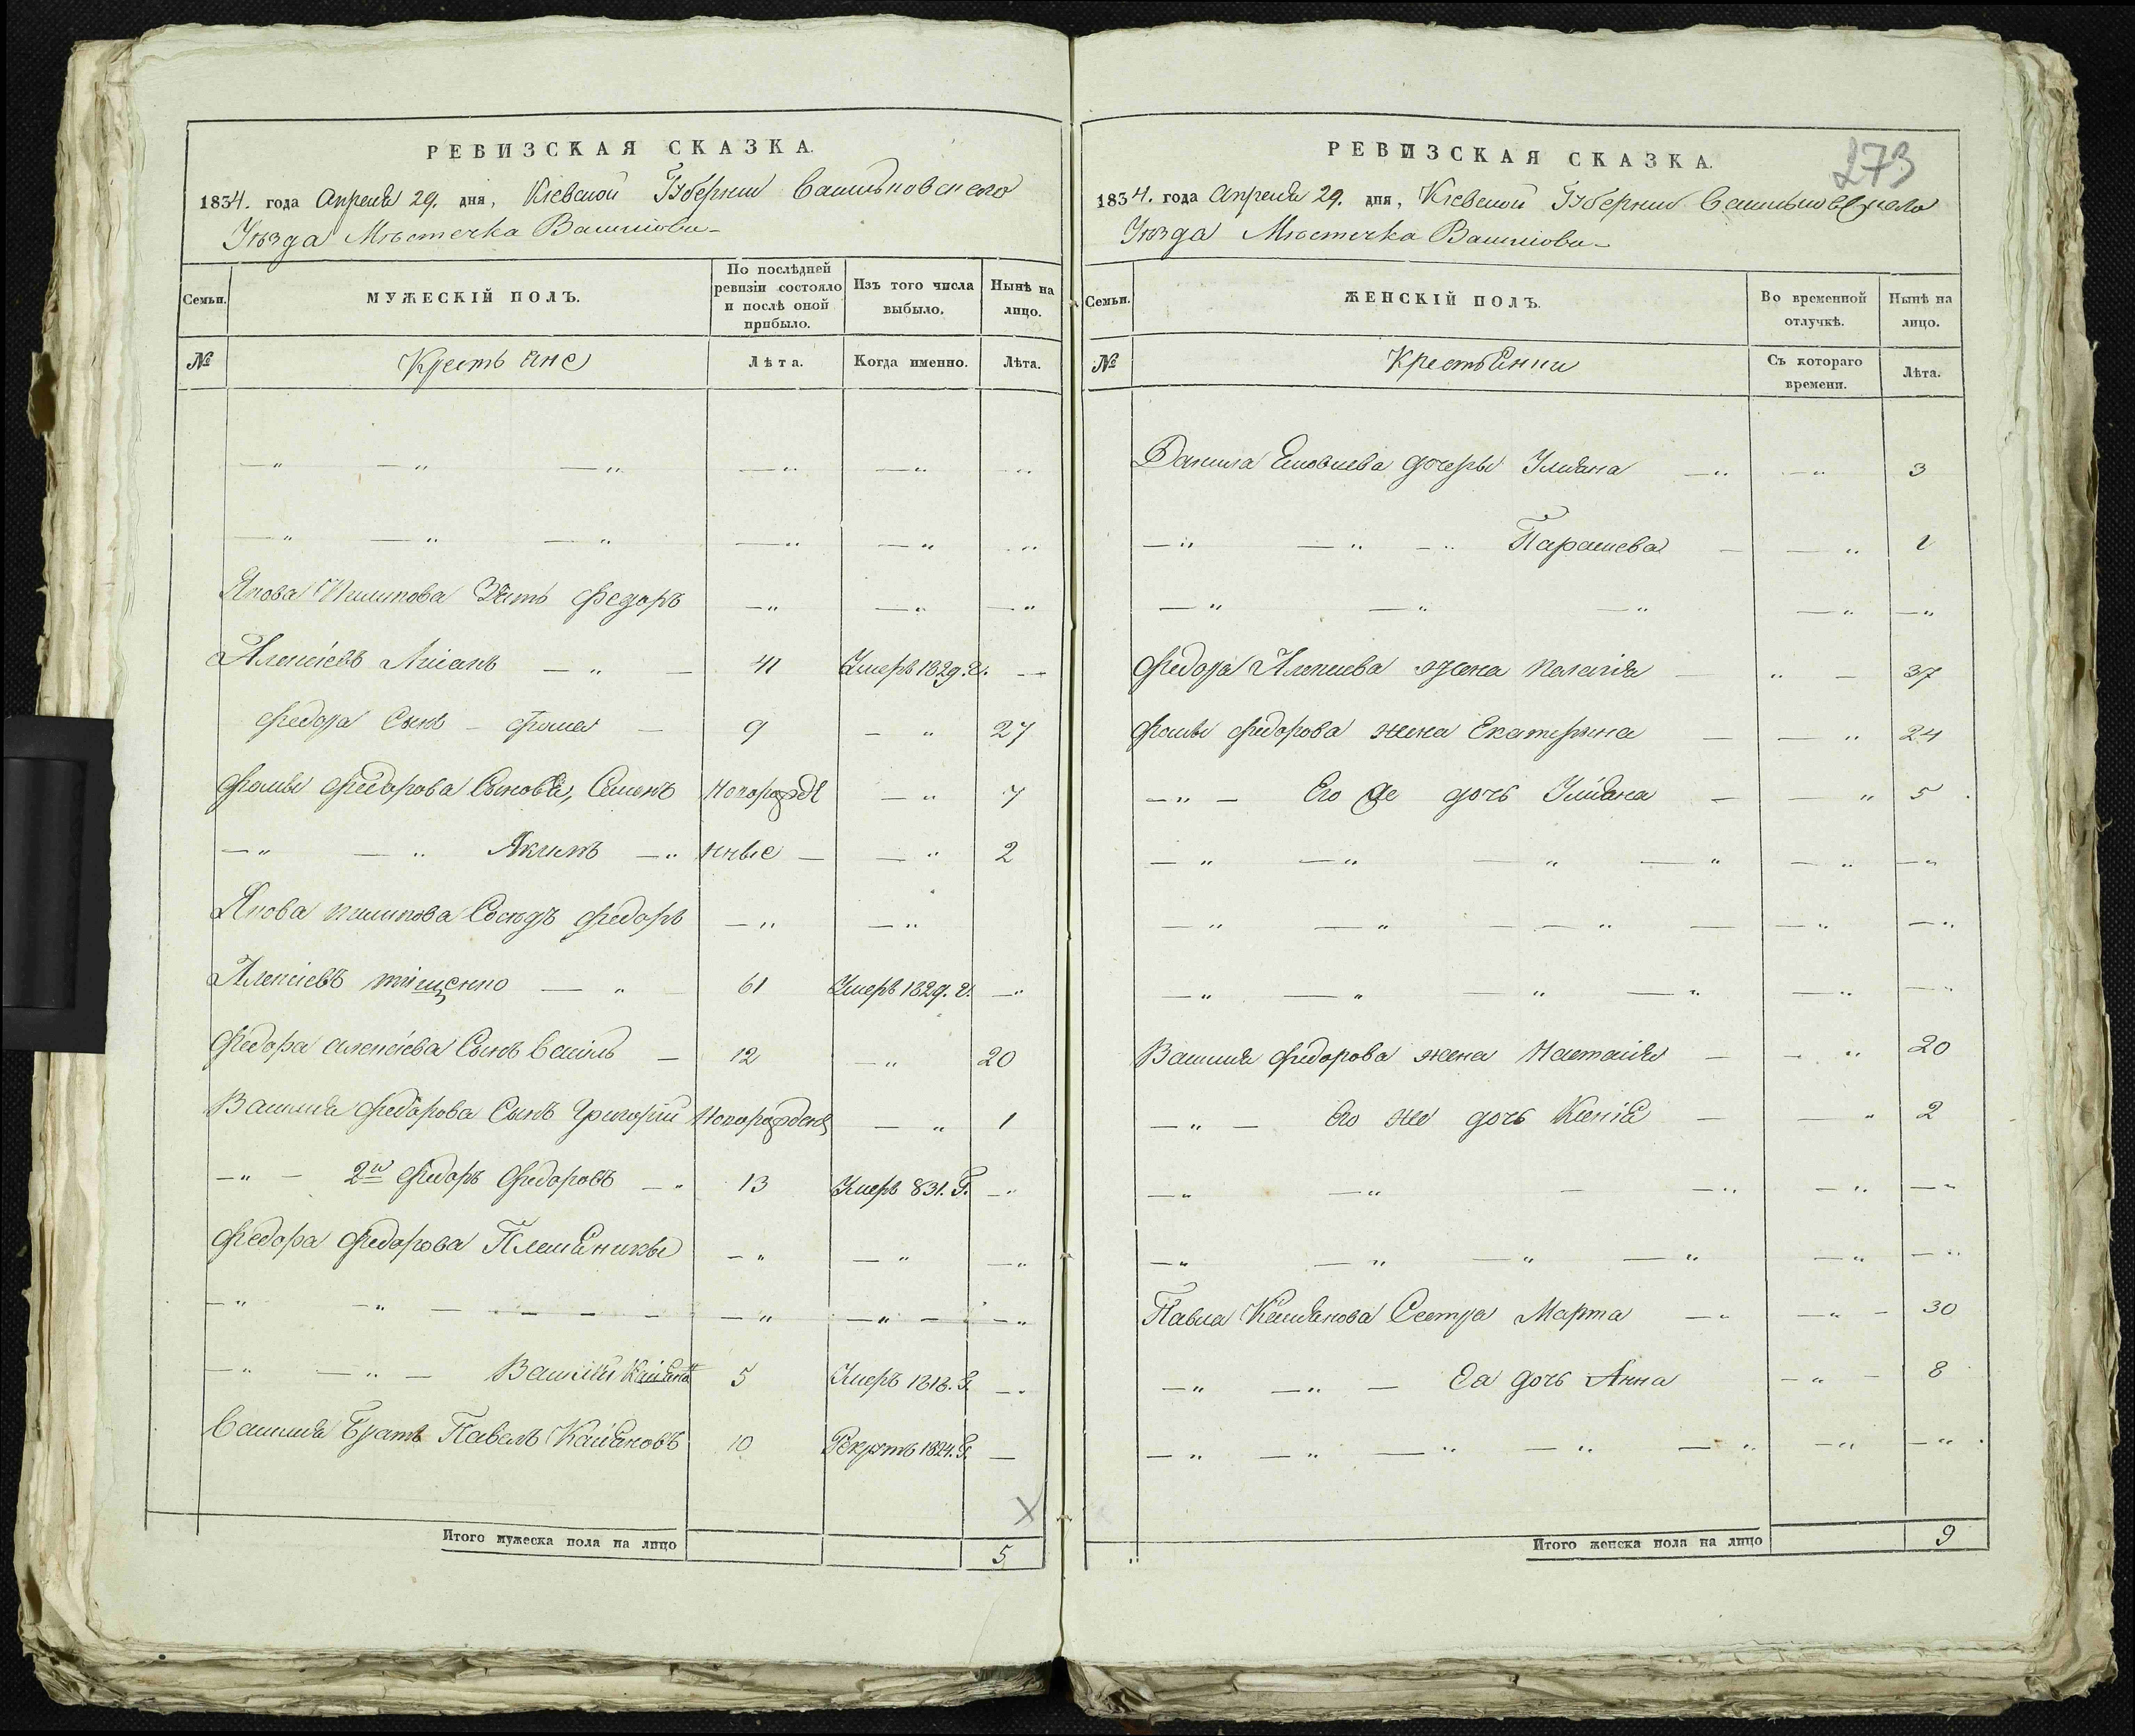 РЕВИЗСКАЯ СКАЗКА.
1834. года Апреля 29. дня, Кіевской Губерніи Васильковского
Уѣзда Мѣстечка Василкова
Семьи. МУЖЕСКІЙ ПОЛЪ. По послѣдней ревизіи состояло и послѣ оной прибыло. Изъ того числа выбыло. Нынѣ на лицо.
№ Крестьяне Лѣта. Когда именно. Лѣта.
— " — " — " — " — " — "
— " — " — " — " — " — "
Якова Пилипова Зять Федоръ — " — " — "
Алексіевъ — " — 41 Умеръ 1829. г. —
Федора Сынъ — Фома — 9 — " 27
Фомы Федорова Сыновья, Семенъ Новорожде — " 7
— " — " Якимъ — " нные — — " 2
Якова пилипова Сосѣдъ Федоръ — " — "
Алексіевъ тищенко — " 61 Умеръ 1829. г. — "
Федора алексіева Сынъ васіль — 12 — " 20
Василия Федорова Сынъ Григорій Новорожденъ — " 1
— " — 2й Федоръ Федоровъ — " 13 Умеръ 831. Г. — "
Федора Федорова Племяникы — " — " — "
— " — " — — — — — " — " — — "
— " — " — Василій 5 Умеръ 1818. Г. — "
Василия Братъ Павелъ Касіяновъ 10 Рекрутъ 1824. Г. —
Итого мужеска пола на лицо 5
РЕВИЗСКАЯ СКАЗКА.
273
1834. года Апреля 29. дня, Кіевской Губерніи Васильковского
Уѣзда Мѣстечка Василкова
Семьи. ЖЕНСКІЙ ПОЛЪ. Во временной отлучкѣ. Нынѣ на лицо.
№ Крестьянки Съ котораго времени. Лѣта.
Данила дочеры Улияна — " — " 3
— " — " — " Параскева — — " 1
— " — " — " — " — "
Федора Алексиева жена палагія — " — 37
Фомы Федорова жена Екатерына — — " 24
— " — Его же дочь Уліяна — — " 5
— " — " — " — " — " — "
— " — " — — " — — " — "
— " — " — " — " — " — "
Василия Федорова жена Настасія — — " 20
— " — Его же дочь Ксенія — — " 2
— " — " — — " — " — "
— " — " — " — " — " — "
Павла Касіянова Сестра Марта — " — " — 30
— " — " — Еа дочь Анна — " — 8
— " — " — " — " — " — " — "
Итого женска пола на лицо 9